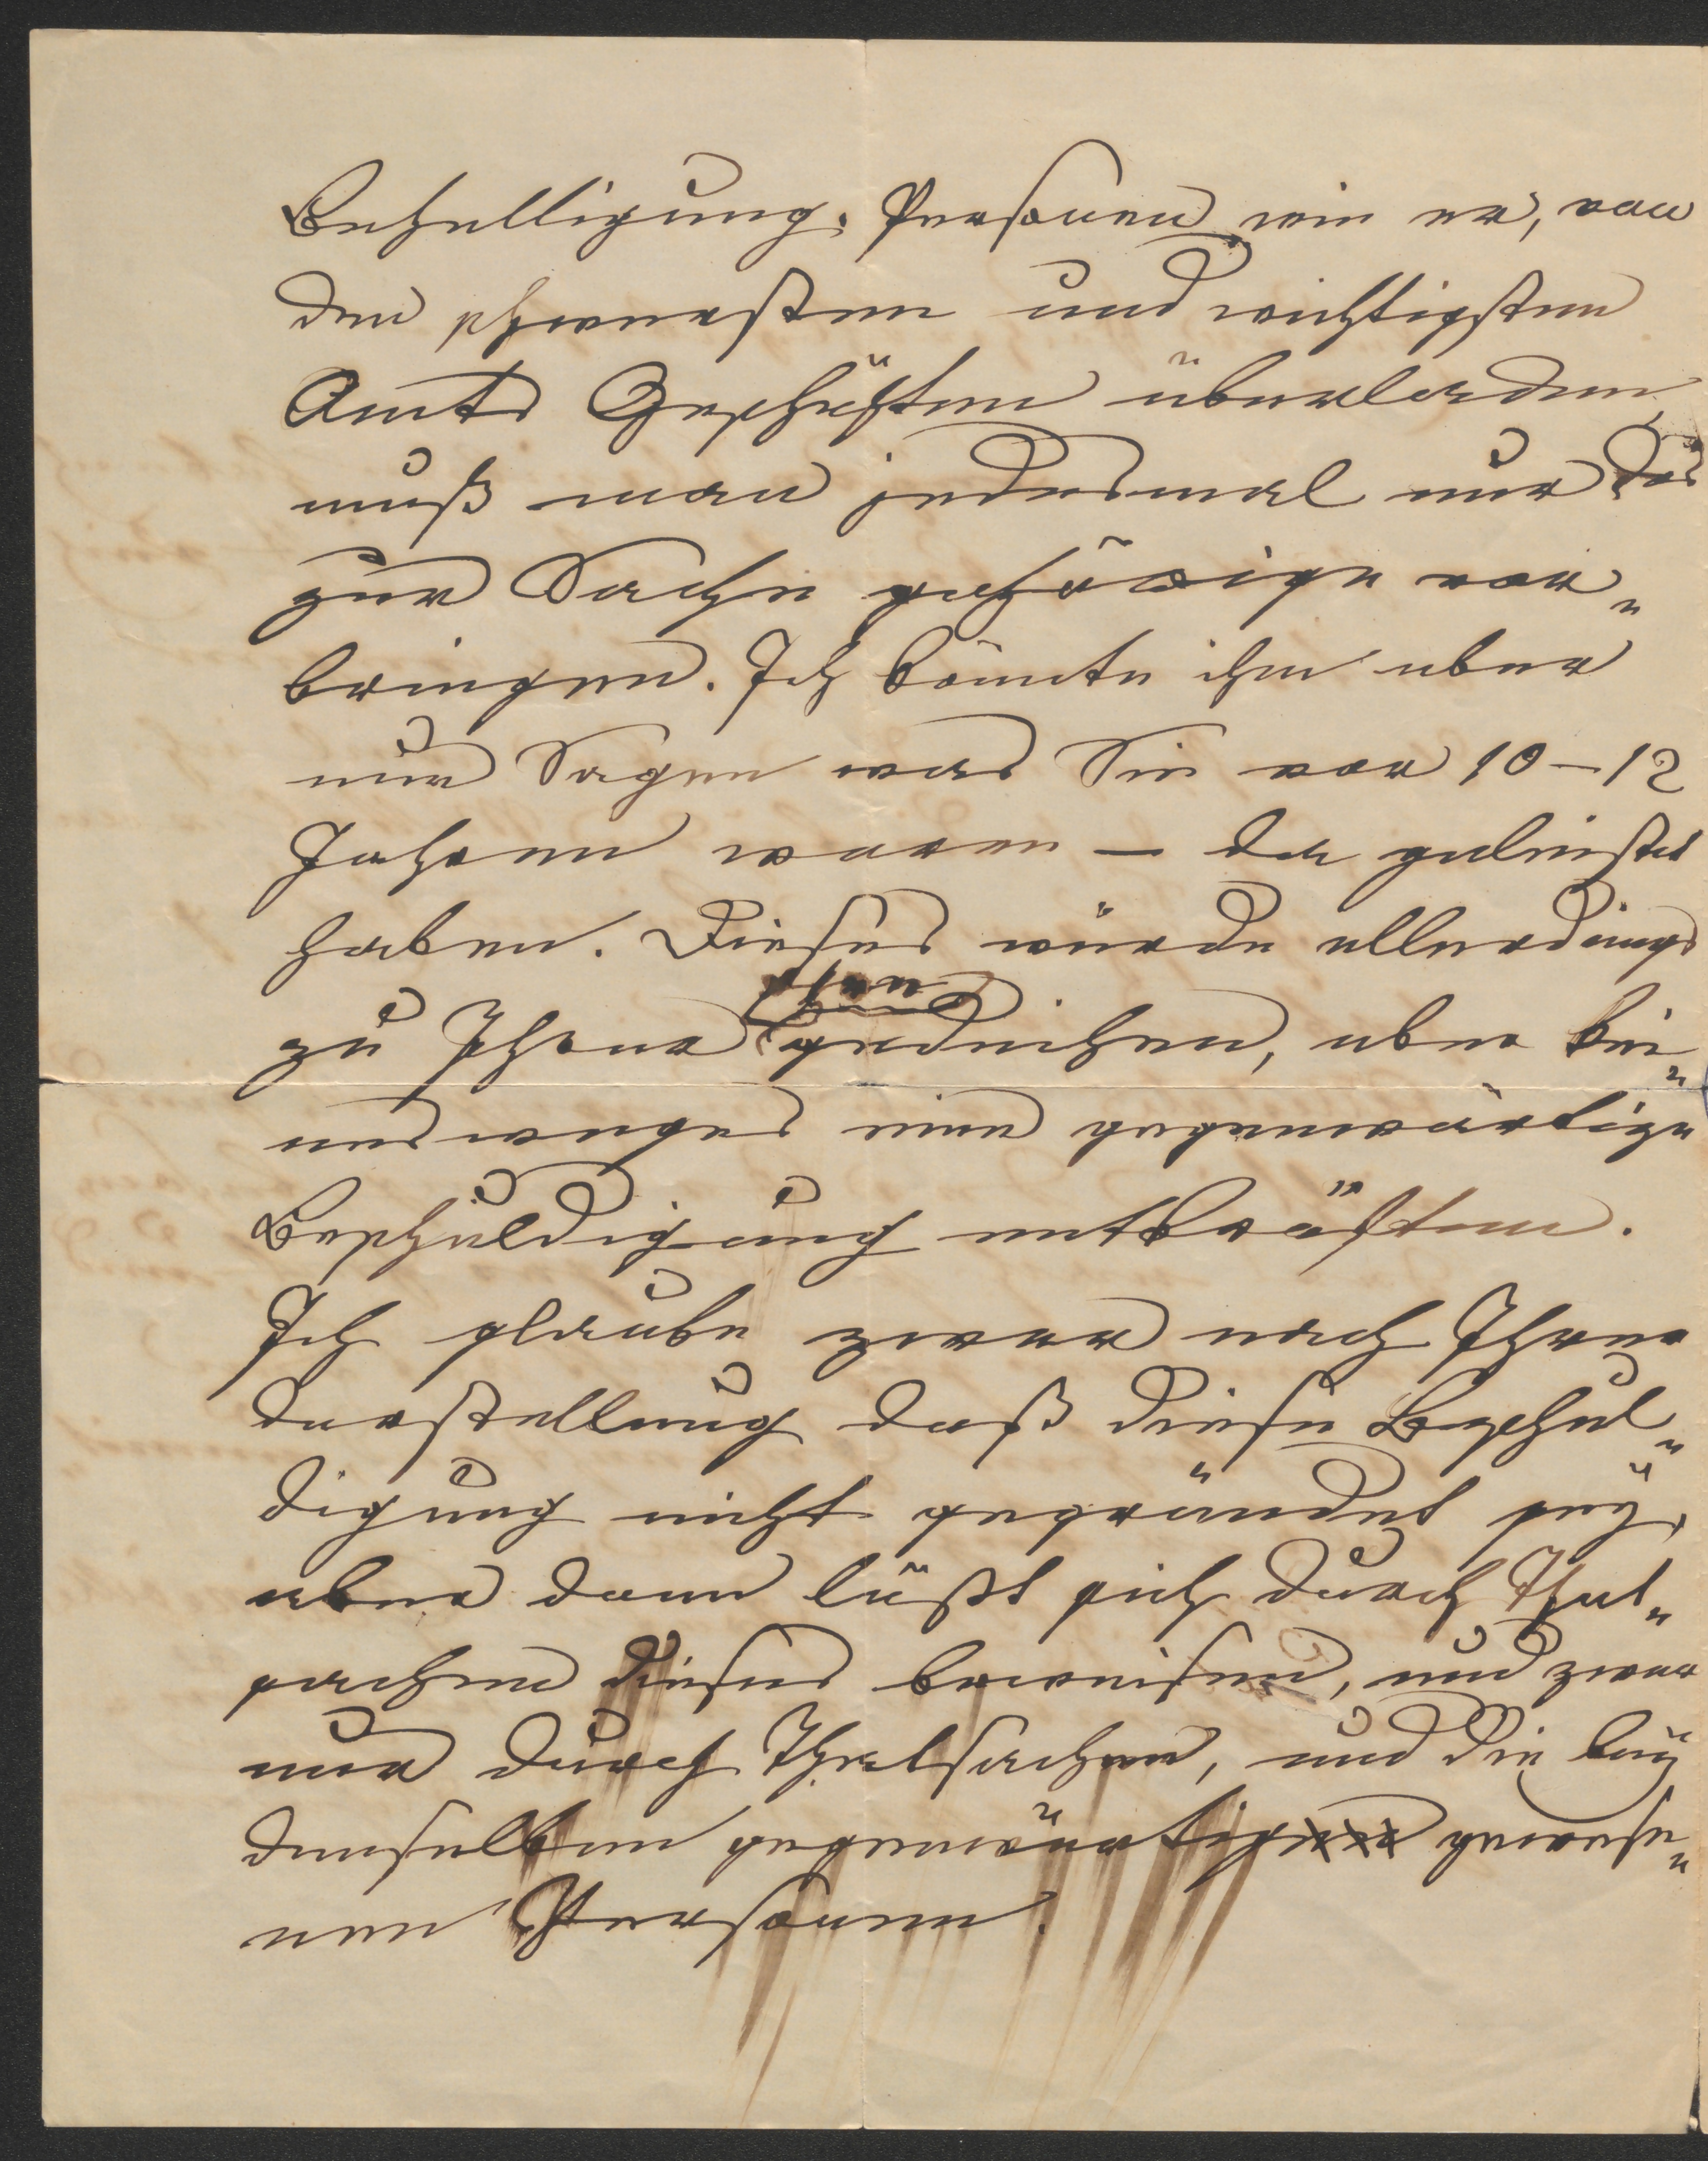 Behelligung. Personen wie er, von
den schwersten und wichtigsten
Amts Geschäften überladen
muß man jedesmal nur das
zur Sache gehörige vor„
bringen. Ich könnte ihm aber
nur Sagen was Sie vor 10–12
Jahren waren — da geleistet
haben. Dieses würde allerdings
zu Ihrer Ehre gedeihen, aber kei„
nesweges eine gegenwärtige
Beschuldigung entkräften.
Ich glaube zwar nach Ihrer
Darstellung daß diese Beschul„
digung nicht gegründet seÿ,
aber dann läßt sich durch That„
sachen dieses beweisen, und zwar
nur durch Thatsachen, und die beÿ
denselben gegenwärtig gewese„
nen Personen.